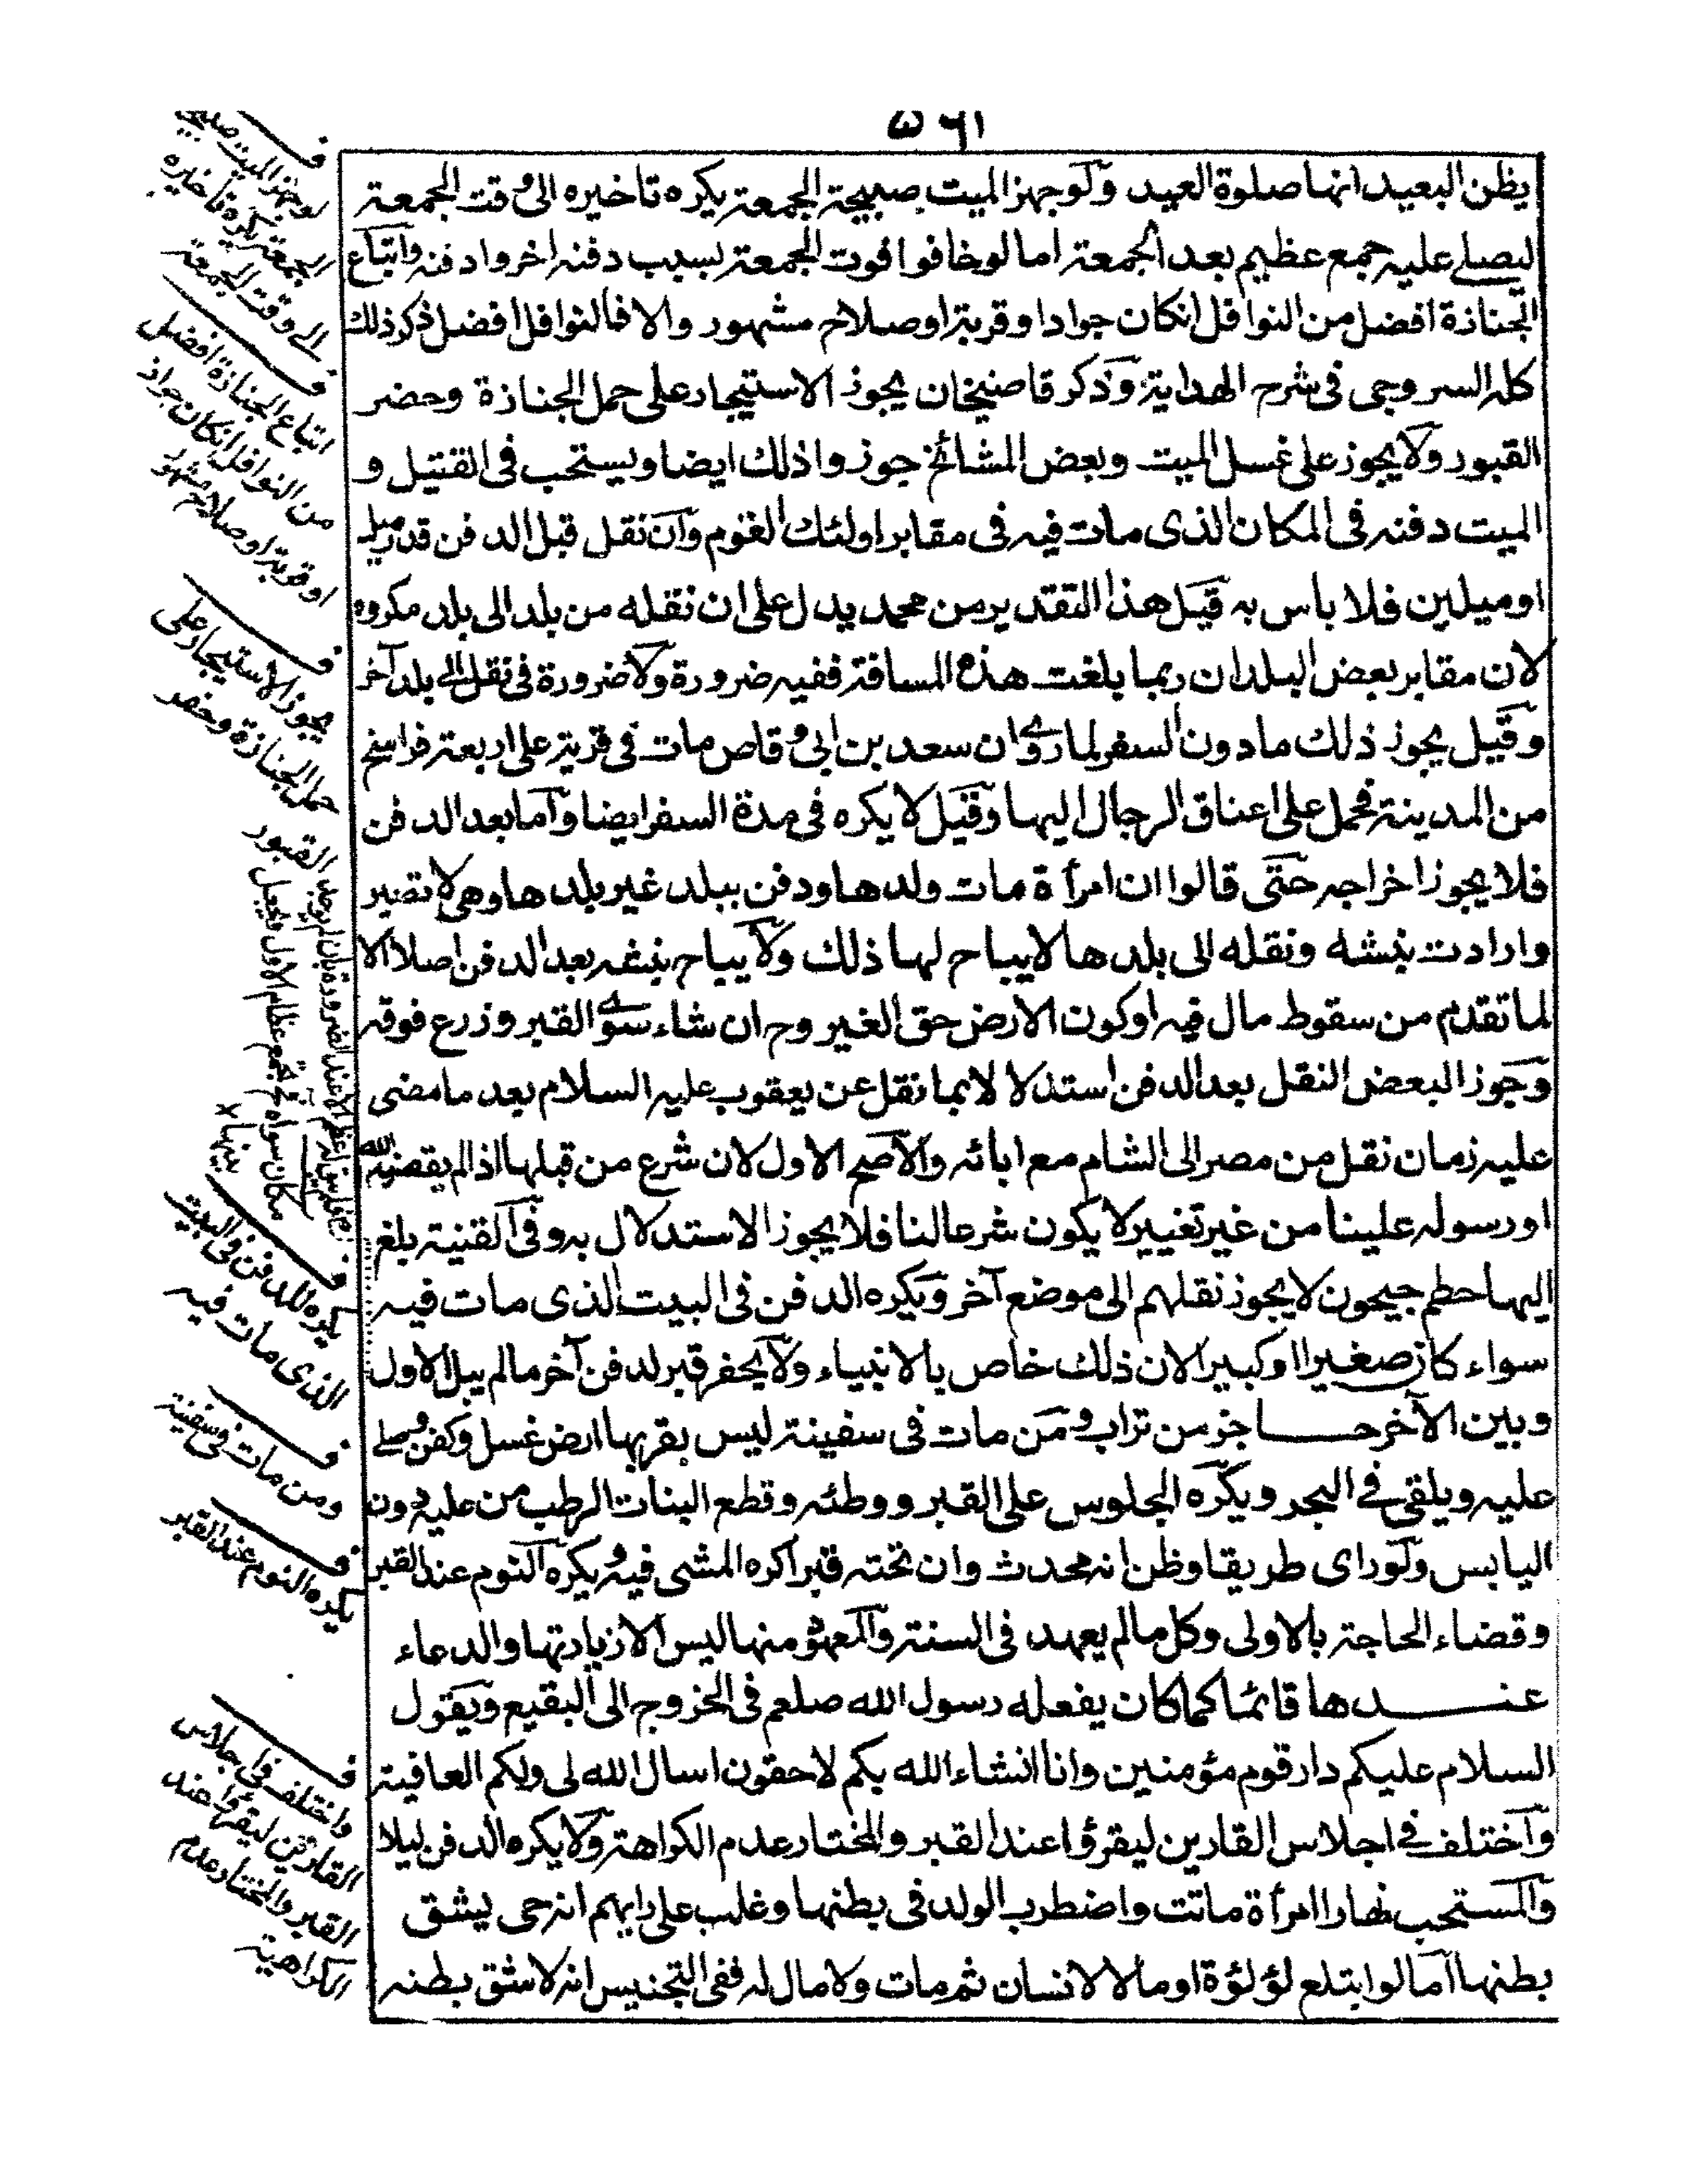 ٥٦١
يظن البعيد انها صلوة العيد ولو جهز الميت صبيحة الجمعة يكره تاخيره الى وقت الجمعة
ليصلے عليه جمع عظيم بعد الجمعة اما لو خافوا فوت الجمعة بسبب دفنه اخروا دفنه واتباع
الجنازة افضل من النوافل انكان جوادا وقربة اوصلاح مشهور والا فالنوافل افضل ذكر ذلك
كله السروجى فى شرح الهداية وذكر قاضيخان يجوز الاستيجار على حمل الجنازة وحضر
القبور ولا يجوز على غسل الميت وبعض المشائخ جوزوا ذلك ايضا ويستحب فى القتيل و
الميت دفنه فى المكان الذى مات فيه فى مقابر اولئك القوم وان نقل قبل الدفن قدر ميل
او ميلين فلا باس به قيل هذا التقدير من محمد يدل على ان نقله من بلد الى بلد مكروه
لان مقابر بعض البلدان ربما بلغت هذه المسافة ففيه ضرورة ولا ضرورة فى نقل الى بلد آخر
وقيل يجوز ذلك ما دون السفر لما روى ان سعد بن ابى وقاص مات فى قرية على اربعة فراسخ
من المدينة فحمل على اعناق الرجال اليها وقيل لا يكره فى مدة السفر ايضا واما بعد الدفن
فلا يجوز اخراجه حتى قالوا ان امرأة مات ولدها ودفن ببلد غير بلدها وهى لا تصبر
وارادت نبشه ونقله الى بلدها لا يباح لها ذلك ولا يباح نبشه بعد الدفن اصلا الا
لما تقدم من سقوط مال فيه او كون الارض حق الغير وح ان شاء سوى القبر وزرع فوقه
وجوز البعض النقل بعد الدفن استدلالا بما نقل عن يعقوب عليه السلام بعد ما مضى
عليه زمان نقل من مصر الى الشام مع ابائه والاصح الاول لان شرع من قبلها اذا لم يقصه الله
او رسوله علينا من غير تغيير لا يكون شرعا لنا فلا يجوز الاستدلال به وفى القنية بلغ
اليها حطم جيحون لا يجوز نقلهم الى موضع آخر ويكره الدفن فى البيت الذى مات فيه
سواء كان صغيرا او كبيرا لان ذلك خاص بالانبياء ولا يحفر قبر لدفن آخر ما لم يبل الاول
وبين الآخر حاجز من تراب ومن مات فى سفينة ليس بقربها ارض غسل وكفن وصلے
عليه ويلقى فے البحر ويكره الجلوس على القبر ووطئه وقطع النبات الرطب من عليه دون
اليابس ولو راى طريقا وظن انه محدث وان تحته قبرا كره المشى فيه ويكره النوم عند القبر
وقضاء الحاجة بالاولى وكل ما لم يعهد فى السنة والمعهود منها ليس الا زيادتها والدعاء
عندها قائما كما كان يفعله رسول الله صلعم فى الخروج الى البقيع ويقول
السلام عليكم دار قوم مؤمنين وانا انشاء الله بكم لاحقون اسال الله لى ولكم العافية
واختلف فے اجلاس القارين ليقرؤا عند القبر والمختار عدم الكراهة ولا يكره الدفن ليلا
والمستحب نهارا امرأة ماتت واضطرب الولد فى بطنها وغلب على رايهم انه حى يشق
بطنها اما لو ابتلع لؤلؤة او مالا لانسان ثم مات ولا مال له ففى التجنيس انه لا شق بطنه
ف
لو جهز الميت
الجمعة يكره تاخيره
الے وقت الجمعة
ف
اتباع الجنازة افضل
من النوافل انكان جواز
او قربة او صلاح مشهور
ف
يجوز الاستيجار على
حمل الجنازة وحفر
القبور
ف
يكره الدفن فى البيت
الذى مات فيه
ف
ومن مات فى سفينة
ف
يكره النوم عند القبر
ف
واختلف فى اجلاس
القارئين ليقرؤا عند
القبر والمختار عدم
الكراهية